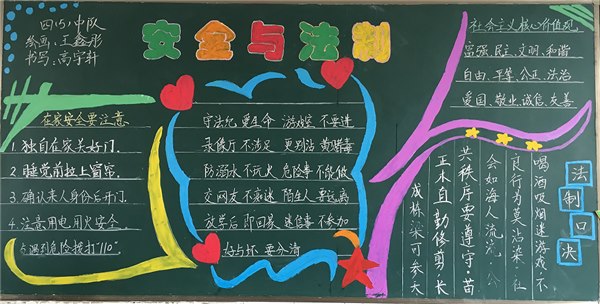 四(5)中队
绘画:王鑫彤
书写:高宇轩
安全与法制
在家安全要注意
1.独自在家关好门.
2.睡觉前拉上窗帘.
3.确认来人身份后开门.
4.注意用电用火安全.
5.遇到危险拨打"110"
守法纪 爱生命 游戏室 不要进
录像厅 不涉足 更别沾 黄赌毒
防溺水 不玩火 危险事 不能做
交网友 不痴迷 陌生人 要远离
放学后 即回家 迷信事 不参加
好与坏 要分清
社会主义核心价值观
富强、民主、文明、和谐
自由、平等、公正、法治
爱国、敬业、诚信、友善
法制口决
喝酒吸烟迷游戏,不
良行为莫沾染.社
会如海人流流,公
共秩序要遵守.苗
正木直勤修剪,长
成栋梁可参天